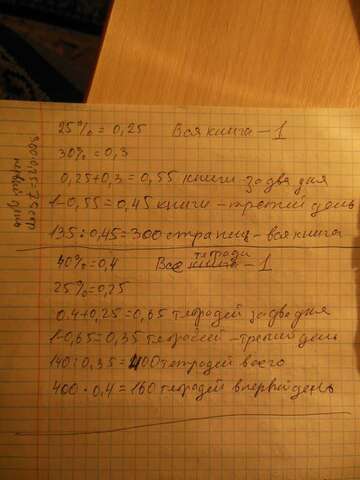 25% = 0,25 Вся книга - 1
30% = 0,3
0,25+0,3 = 0,55 книги за два дня
1-0,55 = 0,45 книги - третий день
135 : 0,45 = 300 страниц - вся книга
40% = 0,4 Все тетради - 1
25% = 0,25
0,4+0,25 = 0,65 тетрадей за два дня
1-0,65 = 0,35 тетрадей - третий день
140 : 0,35 = 400 тетрадей всего
400 · 0,4 = 160 тетрадей в первый день
300·0,25=75 стр
первый день